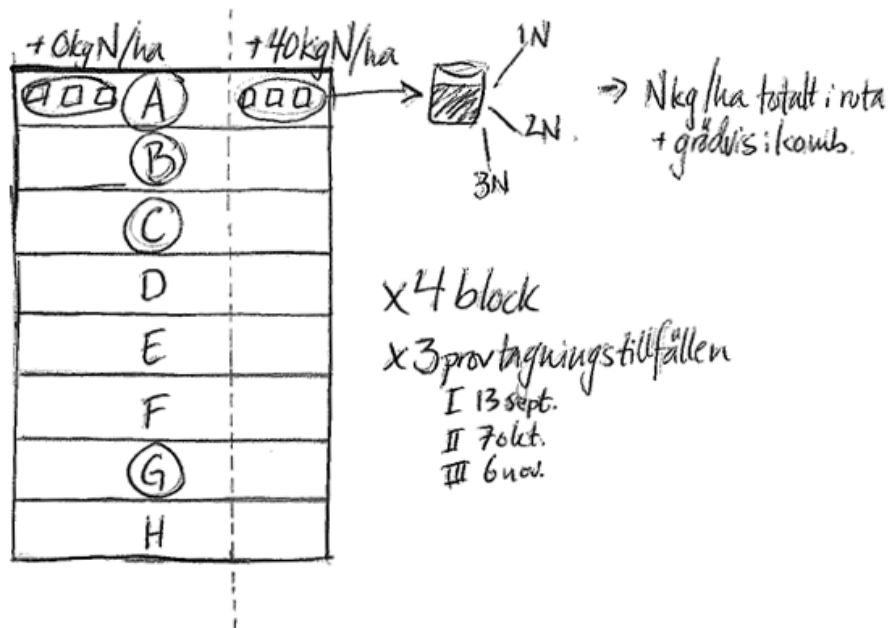 + 0kg N/ha
+40kg N/ha
1N
2N
3N
→ N kg/ha totalt i ruta
+ grödvis i komb.
A
B
C
D
E
F
G
H
x4 block
x3 provtagningstillfällen
I 13 sept.
II 7 okt.
III 6 nov.